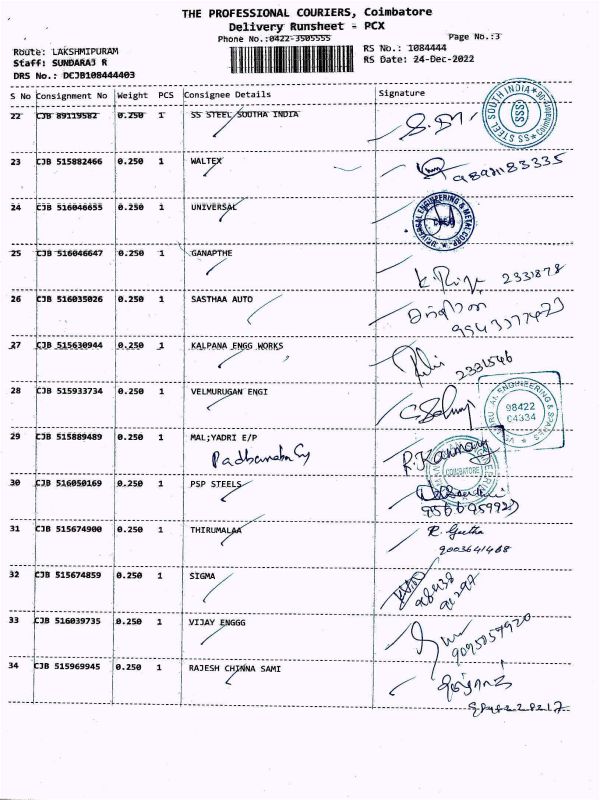 THE PROFESSIONAL COURIERS, Coimbatore
Delivery Runsheet - PCX
Phone No.:0422-3505555
Page No.:3
Route: LAKSHMIPURAM
RS No.: 1084444
Staff: SUNDARAJ R
RS Date: 24-Dec-2022
DRS No.: DCJB108444403
S No Consignment No Weight PCS Consignee Details Signature
22 CJB 89119582 0.250 1 SS STEEL SOUTHA INDIA
SS STEEL SOUTH INDIA
SSS
23 CJB 515882466 0.250 1 WALTEX
24 CJB 516046655 0.250 1 UNIVERSAL
UNIVERSAL ENGINEERING & METAL CORP.
25 CJB 516046647 0.250 1 GANAPTHE
2331878
26 CJB 516035026 0.250 1 SASTHAA AUTO
27 CJB 515630944 0.250 1 KALPANA ENGG WORKS
2331546
28 CJB 515933734 0.250 1 VELMURUGAN ENGI
ENGINEERING & SPARES
98422
04334
29 CJB 515889489 0.250 1 MAL;YADRI E/P
COIMBATORE
30 CJB 516050169 0.250 1 PSP STEELS
31 CJB 515674900 0.250 1 THIRUMALAA
R. Geetha
32 CJB 515674859 0.250 1 SIGMA
33 CJB 516039735 0.250 1 VIJAY ENGGG
9095057920
34 CJB 515969945 0.250 1 RAJESH CHINNA SAMI